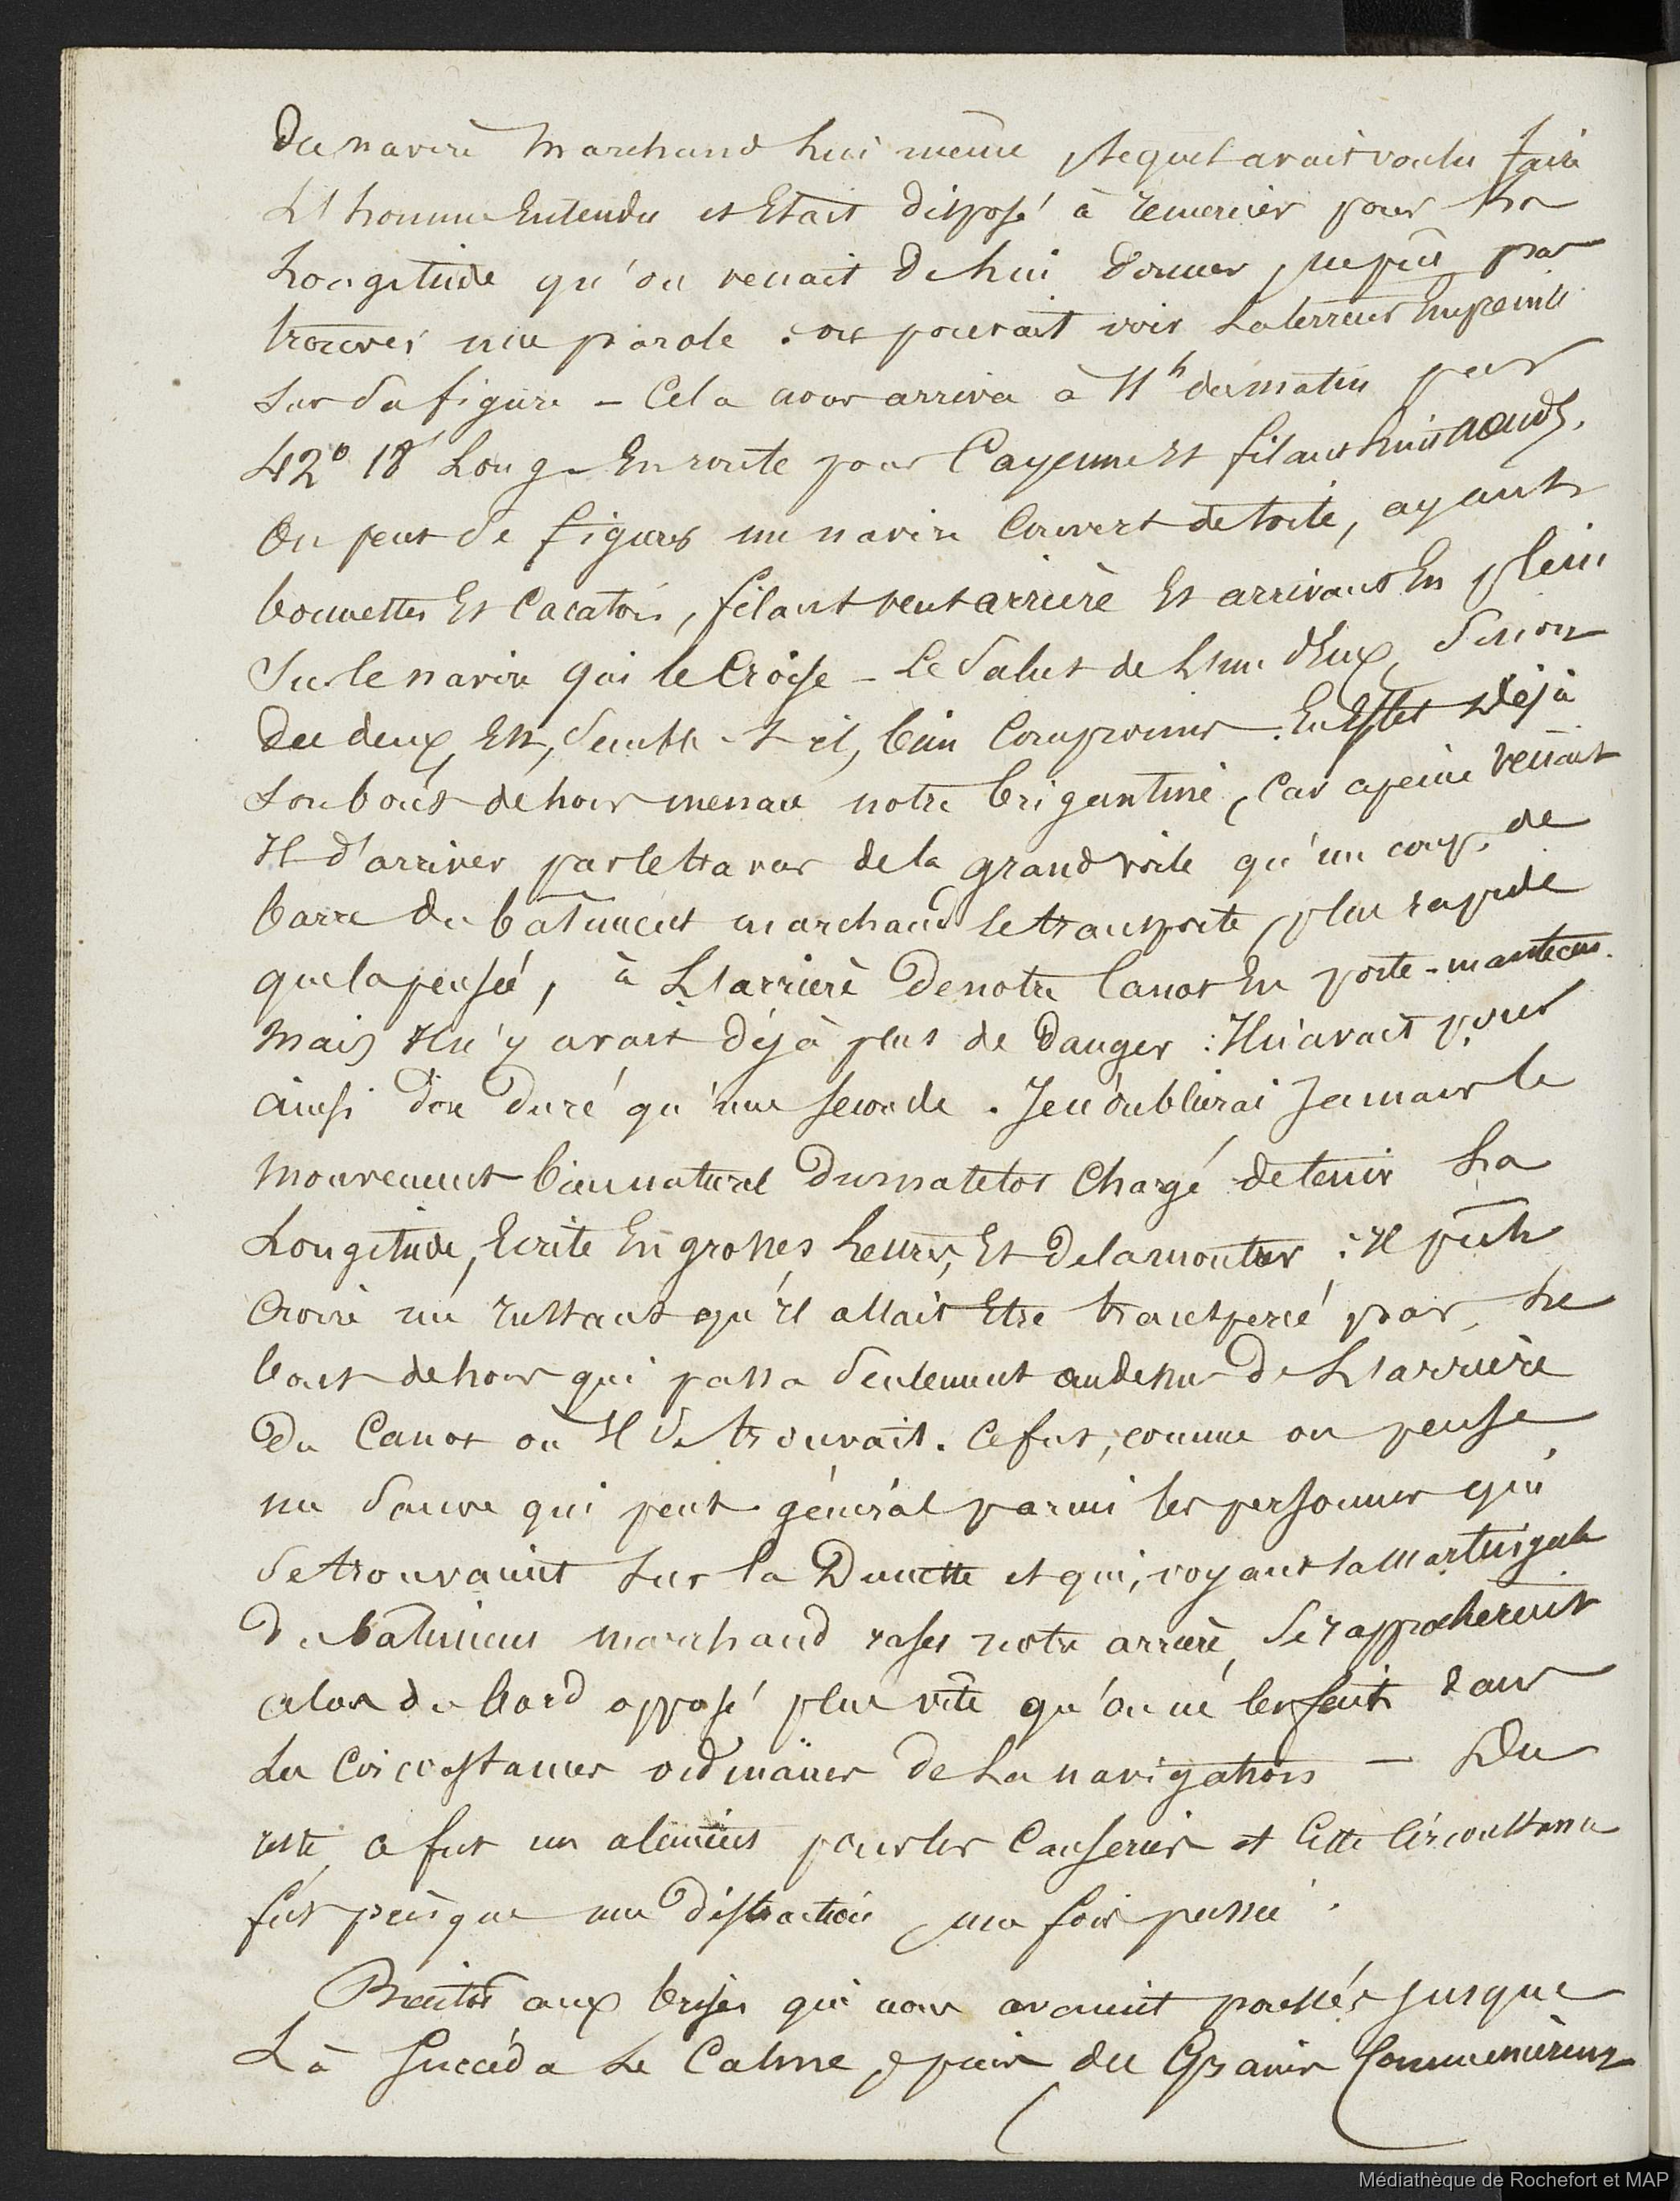 Du navire marchand lui même, lequel avait voulu faire
L'homme Entendu et Etait disposé à remercier pour La
Longitude qu'on venait de Lui donner, ne put pas
trouver une parole : on pouvait voir La terreur Empreinte
Sur Sa figure – Cela nous arriva à 11h du matin par
42° 18' Long – En route pour Cayenne Et filant huit nœuds.
On peut Se figurer un navire Couvert de toile, ayant
bonnettes Et Cacatois, filant vent arrière Et arrivant En plein
Sur le navire qui le Croise – Le Salut de L'un d'Eux, Sinon
des deux, Est, Semble-t-il, bien Compromis. En Effet Déjà
Son bout de hors menace notre brigantine, Car à peine venait
Il d'arriver par le travers de la grand voile qu'un coup de
barre du bâtiment marchand le transporte, plus rapide
que la pensée, à L'arrière De notre Canot En porte-manteau.
Mais Il n'y avait déjà plus de Danger : Il n'avait pour
ainsi dire duré qu'une seconde. Je n'oublierai Jamais le
Mouvement bien naturel Du matelot Chargé de tenir La
Longitude, Ecrite En grosses Lettres, Et De la montrer : Il put
Croire un Instant qu'Il allait Etre transpercé par Le
bout de hors qui passa Seulement au dessus De L'arrière
Du Canot où Il Se trouvait. Ce fut, comme on pense,
un Sauve qui peut général parmi les personnes qui
Se trouvaient Sur la Dunette et qui, voyant la Martingale
Du bâtiment marchand raser notre arrière, Se rapprochèrent
alors du bord opposé plus vite qu'on ne les fait dans
Les Circonstances ordinaires De La navigation – Du
reste, Ce fut un aliment pour les Causeries et Cette Circonstance
fut presque une Distraction, une fois passée.
Bientôt aux brises qui nous avaient poussés jusque
Là Succéda Le Calme, puis des Grains Commencèrent
Médiathèque de Rochefort et MAP